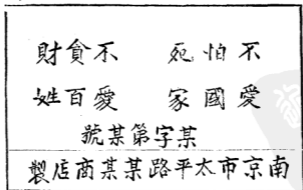 不怕死　不貪財
愛國家　愛百姓
某字第某號
南京市太平路某某商店製